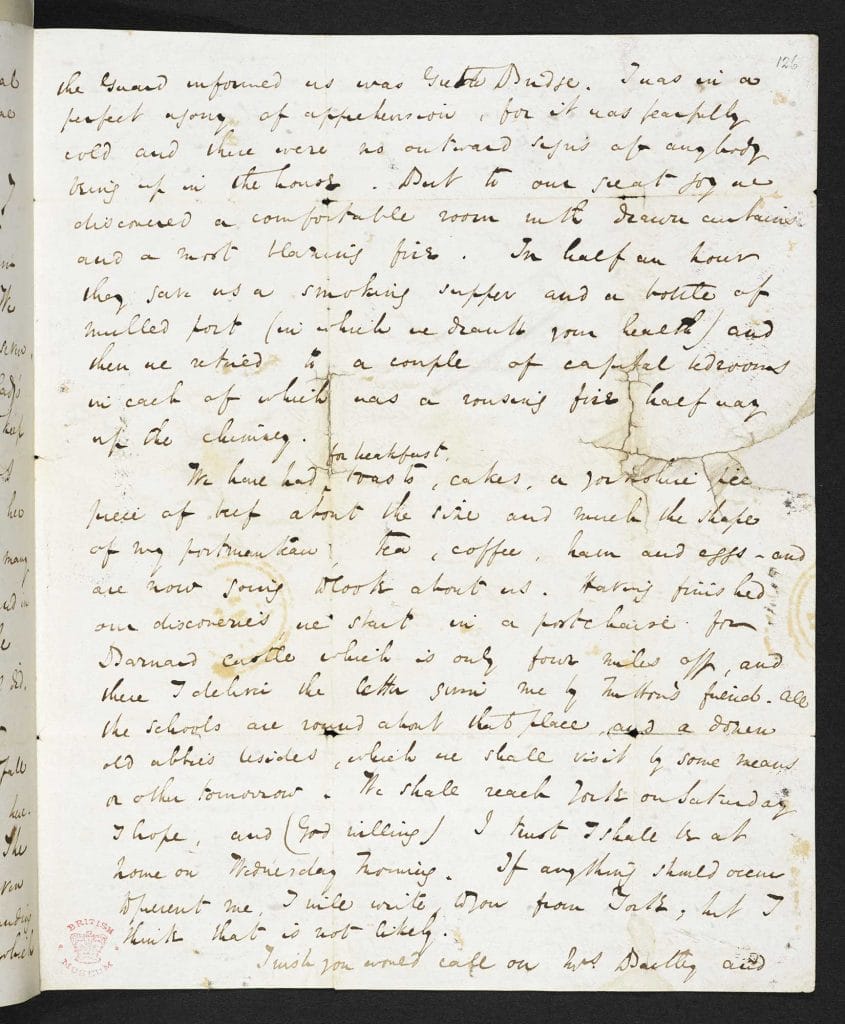 126
the Guard informed us was Greta Bridge. I was in a
perfect agony of apprehension, for it was fearfully
cold and there were no outward signs of anybody
being up in the house. But to our great joy we
discovered a comfortable room with drawn curtains
and a most blazing fire. In half an hour
they gave us a smoking supper and a bottle of
mulled port (in which we drank your health) and
then we retired to a couple of capital bedrooms
in each of which was a rousing fire half way
up the chimney.
for breakfast,
We have had toasts, cakes, a yorkshire pie
piece of beef about the size and much the shape
of my portmanteau, tea, coffee, ham and eggs - and
are now going to look about us. Having finished
our discoveries, we start in a postchaise for
Barnard Castle which is only four miles off, and
there I deliver the letter given me by Mitton's friend. All
the schools are round about that place, and a dozen
old abbies besides, which we shall visit by some means
or other tomorrow. We shall reach York on Saturday
I hope, and (God willing) I trust I shall be at
home on Wednesday Morning. If anything should occur
to prevent me, I will write to you from York, but I
think that is not likely.
I wish you would call on Mrs. Bartley and
BRITISH
MUSEUM